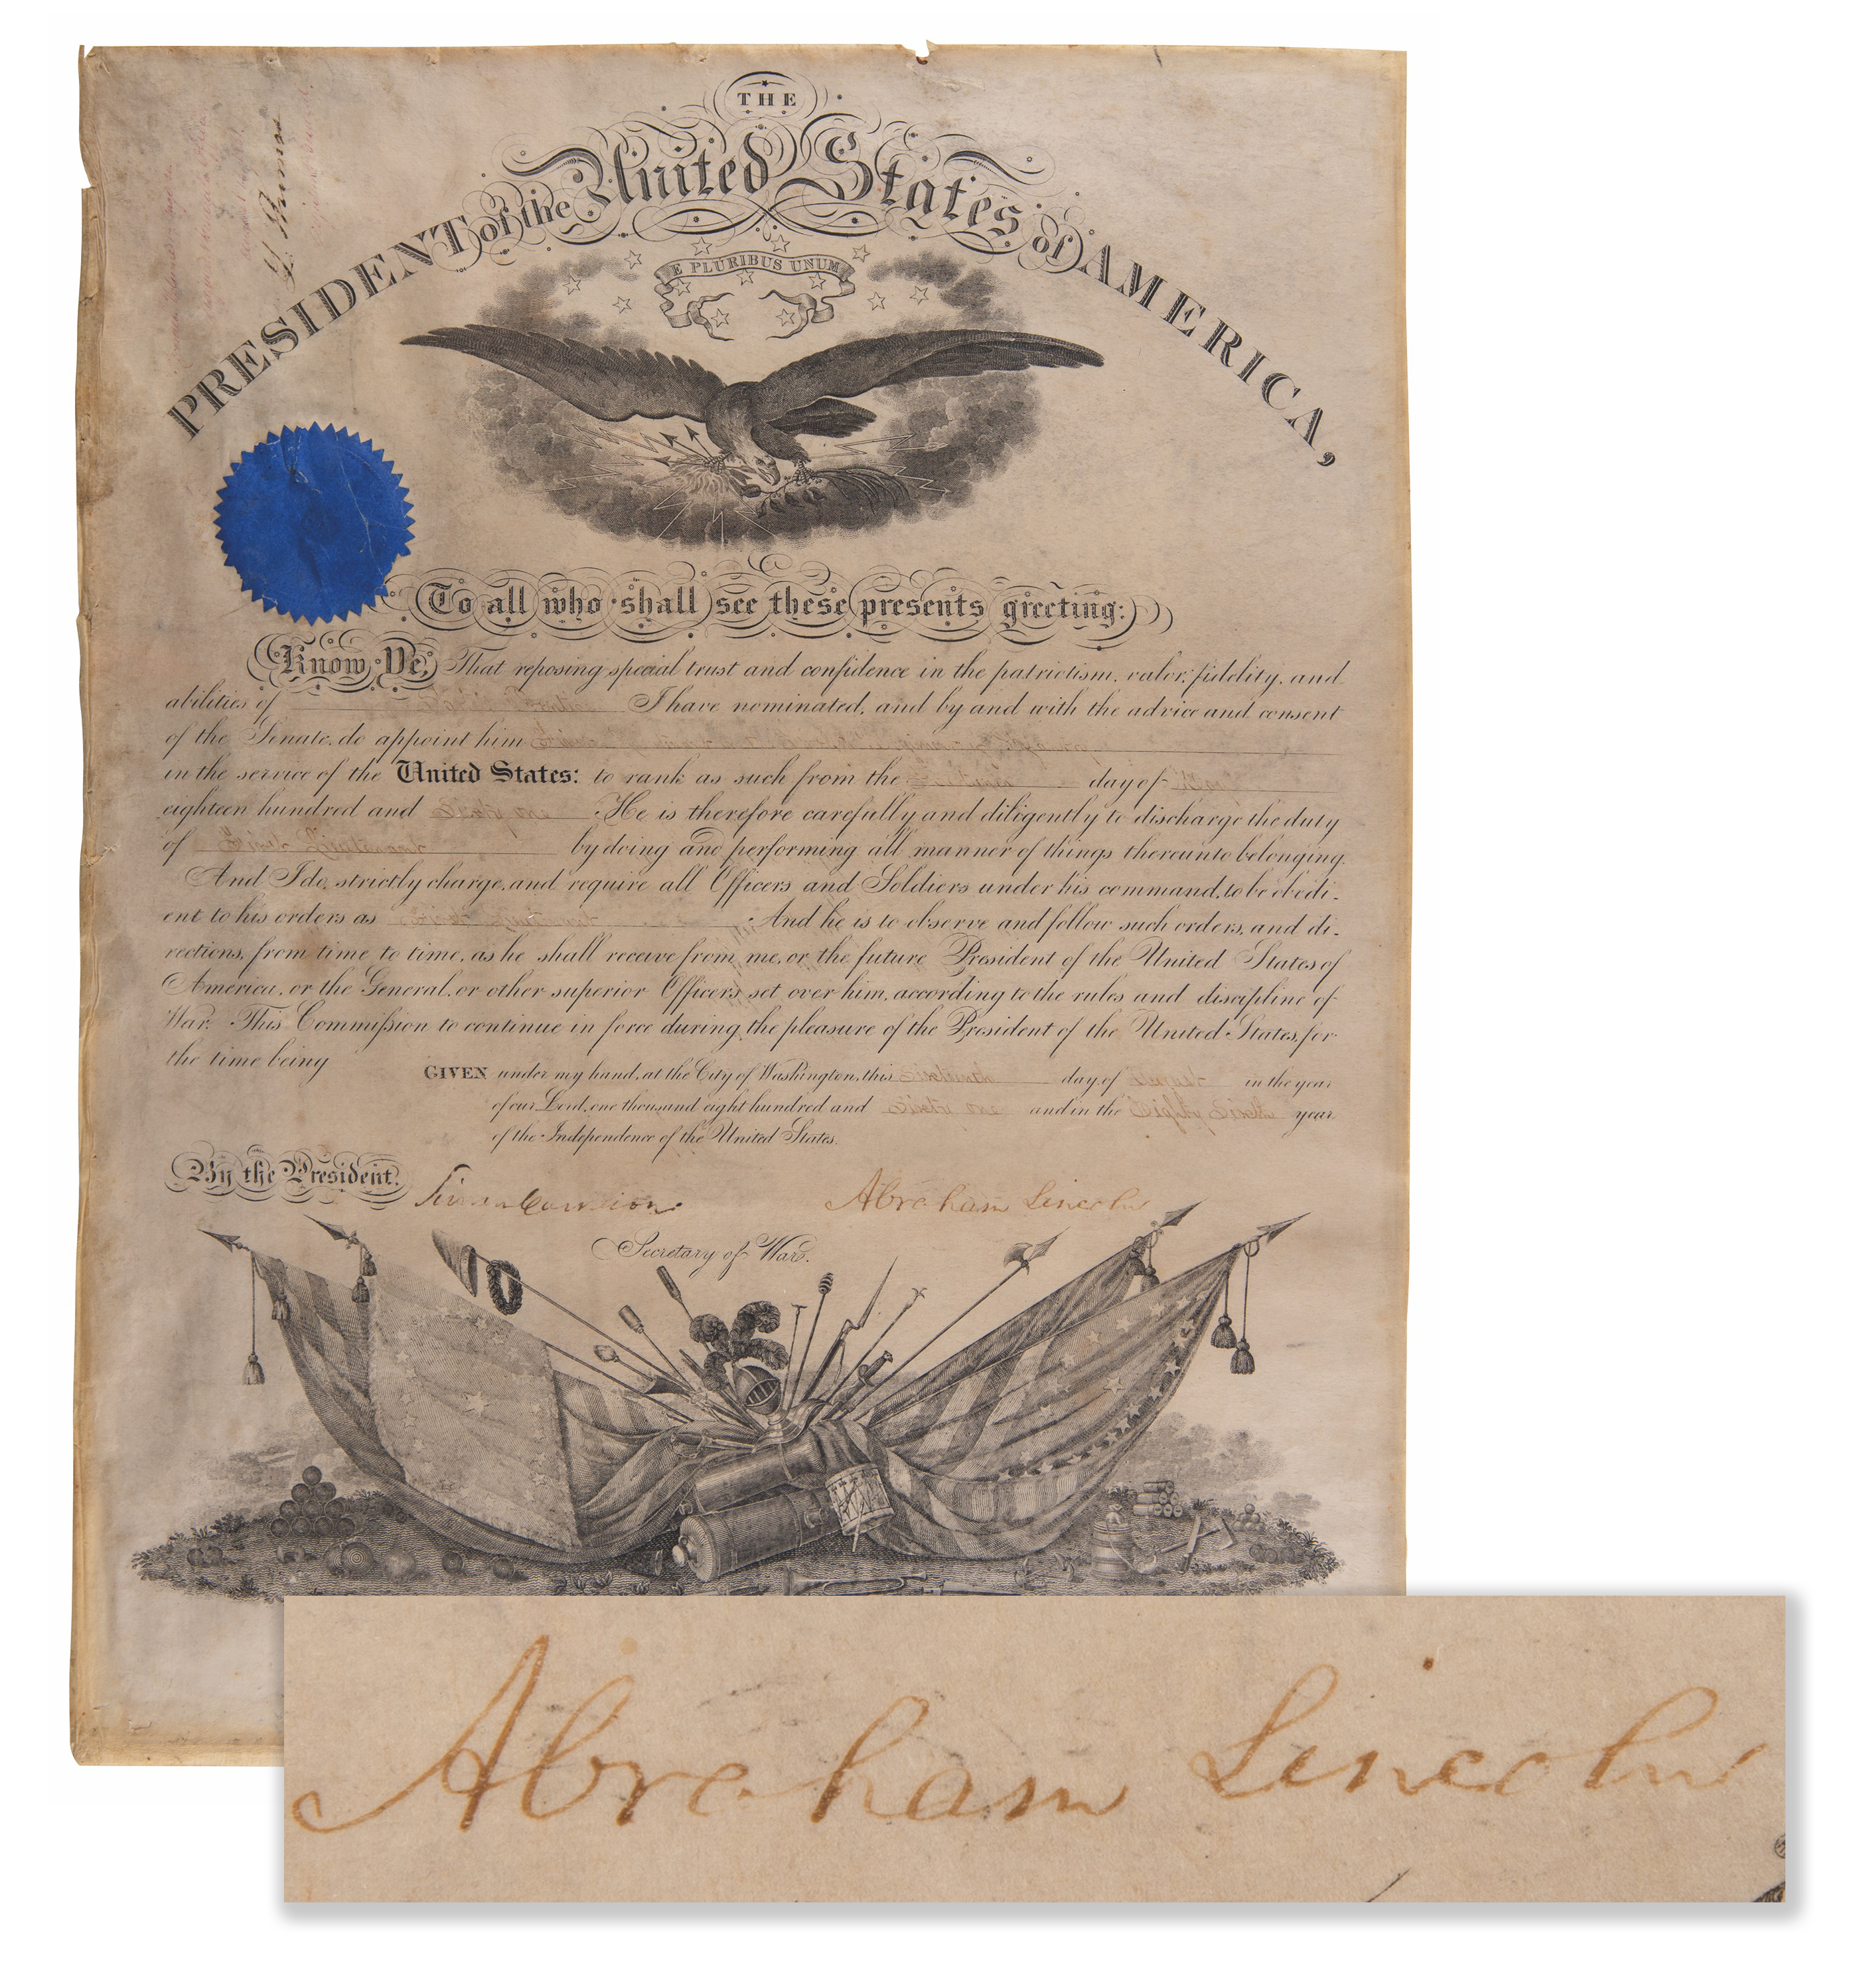 THE
PRESIDENT of the United States of AMERICA,
E PLURIBUS UNUM
To all who shall see these presents greeting:
Know Ye, That reposing special trust and confidence in the patriotism, valor, fidelity, and
abilities of I have nominated, and by and with the advice and consent
of the Senate, do appoint him
in the service of the United States: to rank as such from the day of
eighteen hundred and Sixty one He is therefore carefully and diligently to discharge the duty
of First Lieutenant by doing and performing all manner of things thereunto belonging.
And I do, strictly charge, and require all Officers and Soldiers under his command, to be obedi-
ent to his orders as First Lieutenant And he is to observe and follow such orders, and di-
rections, from time to time, as he shall receive from me, or the future President of the United States of
America, or the General, or other superior Officers set over him, according to the rules and discipline of
War. This Commission to continue in force during the pleasure of the President of the United States, for
the time being
GIVEN under my hand, at the City of Washington, this sixteenth day of August in the year
of our Lord, one thousand eight hundred and sixty one and in the Eighty Sixth year
of the Independence of the United States.
By the President.
Simon Cameron Abraham Lincoln
Secretary of War.
Abraham Lincoln